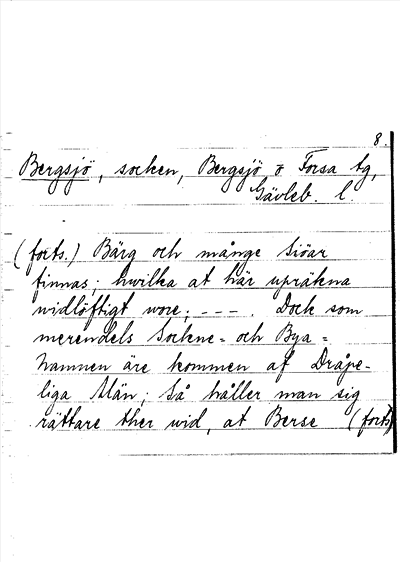 8.
Bergsjö, socken, Bergsjö o Forsa tg,
Gävleb. l.
(forts.) Bärg och månge Siöar
finnas; hwilka at här upräkna
widlöftigt wore; --- . Dock som
merendels Sockne- och Bya-
hamnen äre kommen af Dråpe-
liga Män; Så håller man sig
rättare ther wid, at Berse (forts)